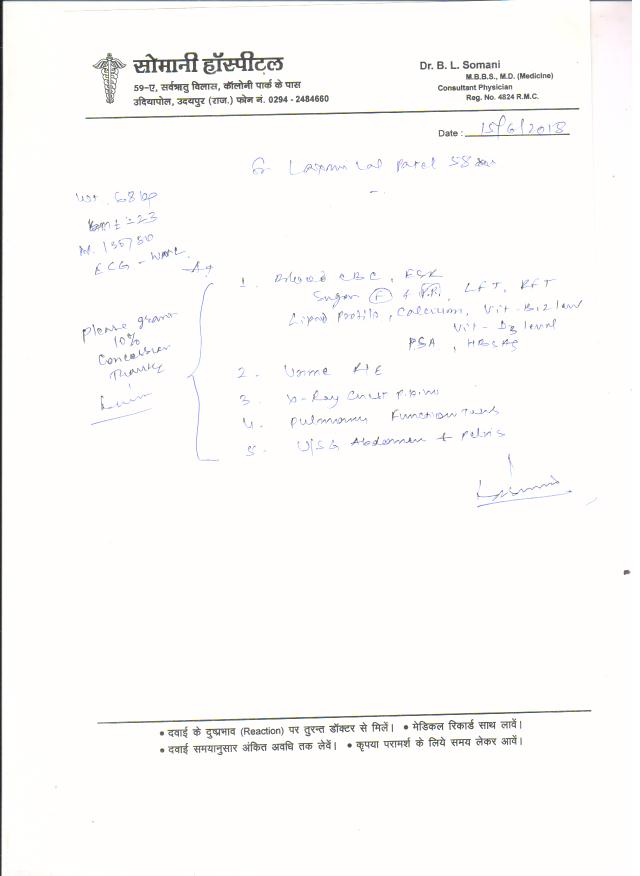 सोमानी हॉस्पीटल
59-ए, सर्वऋतु विलास, कॉलोनी पार्क के पास
उदियापोल, उदयपुर (राज.) फोन नं. 0294 - 2484660
Dr. B. L. Somani
M.B.B.S., M.D. (Medicine)
Consultant Physician
Reg. No. 4824 R.M.C.
Date : 15/6/2018
Lal Patel 58
Wt. 68 kg
= 23
ECG -
Please grant
10%
Concession
Thanks
1. Blood CBC, ESR
Sugar F & P.P., LFT, RFT
Lipid Profile, Calcium, Vit-B12 level
Vit-D3 level
PSA, HBsAg
2. Urine R/E
3. X-Ray Chest
4. Pulmonary Function Tests
5. USG Abdomen + Pelvis
• दवाई के दुष्प्रभाव (Reaction) पर तुरन्त डॉक्टर से मिलें। • मेडिकल रिकार्ड साथ लावें।
• दवाई समयानुसार अंकित अवधि तक लेवें। • कृपया परामर्श के लिये समय लेकर आवें।